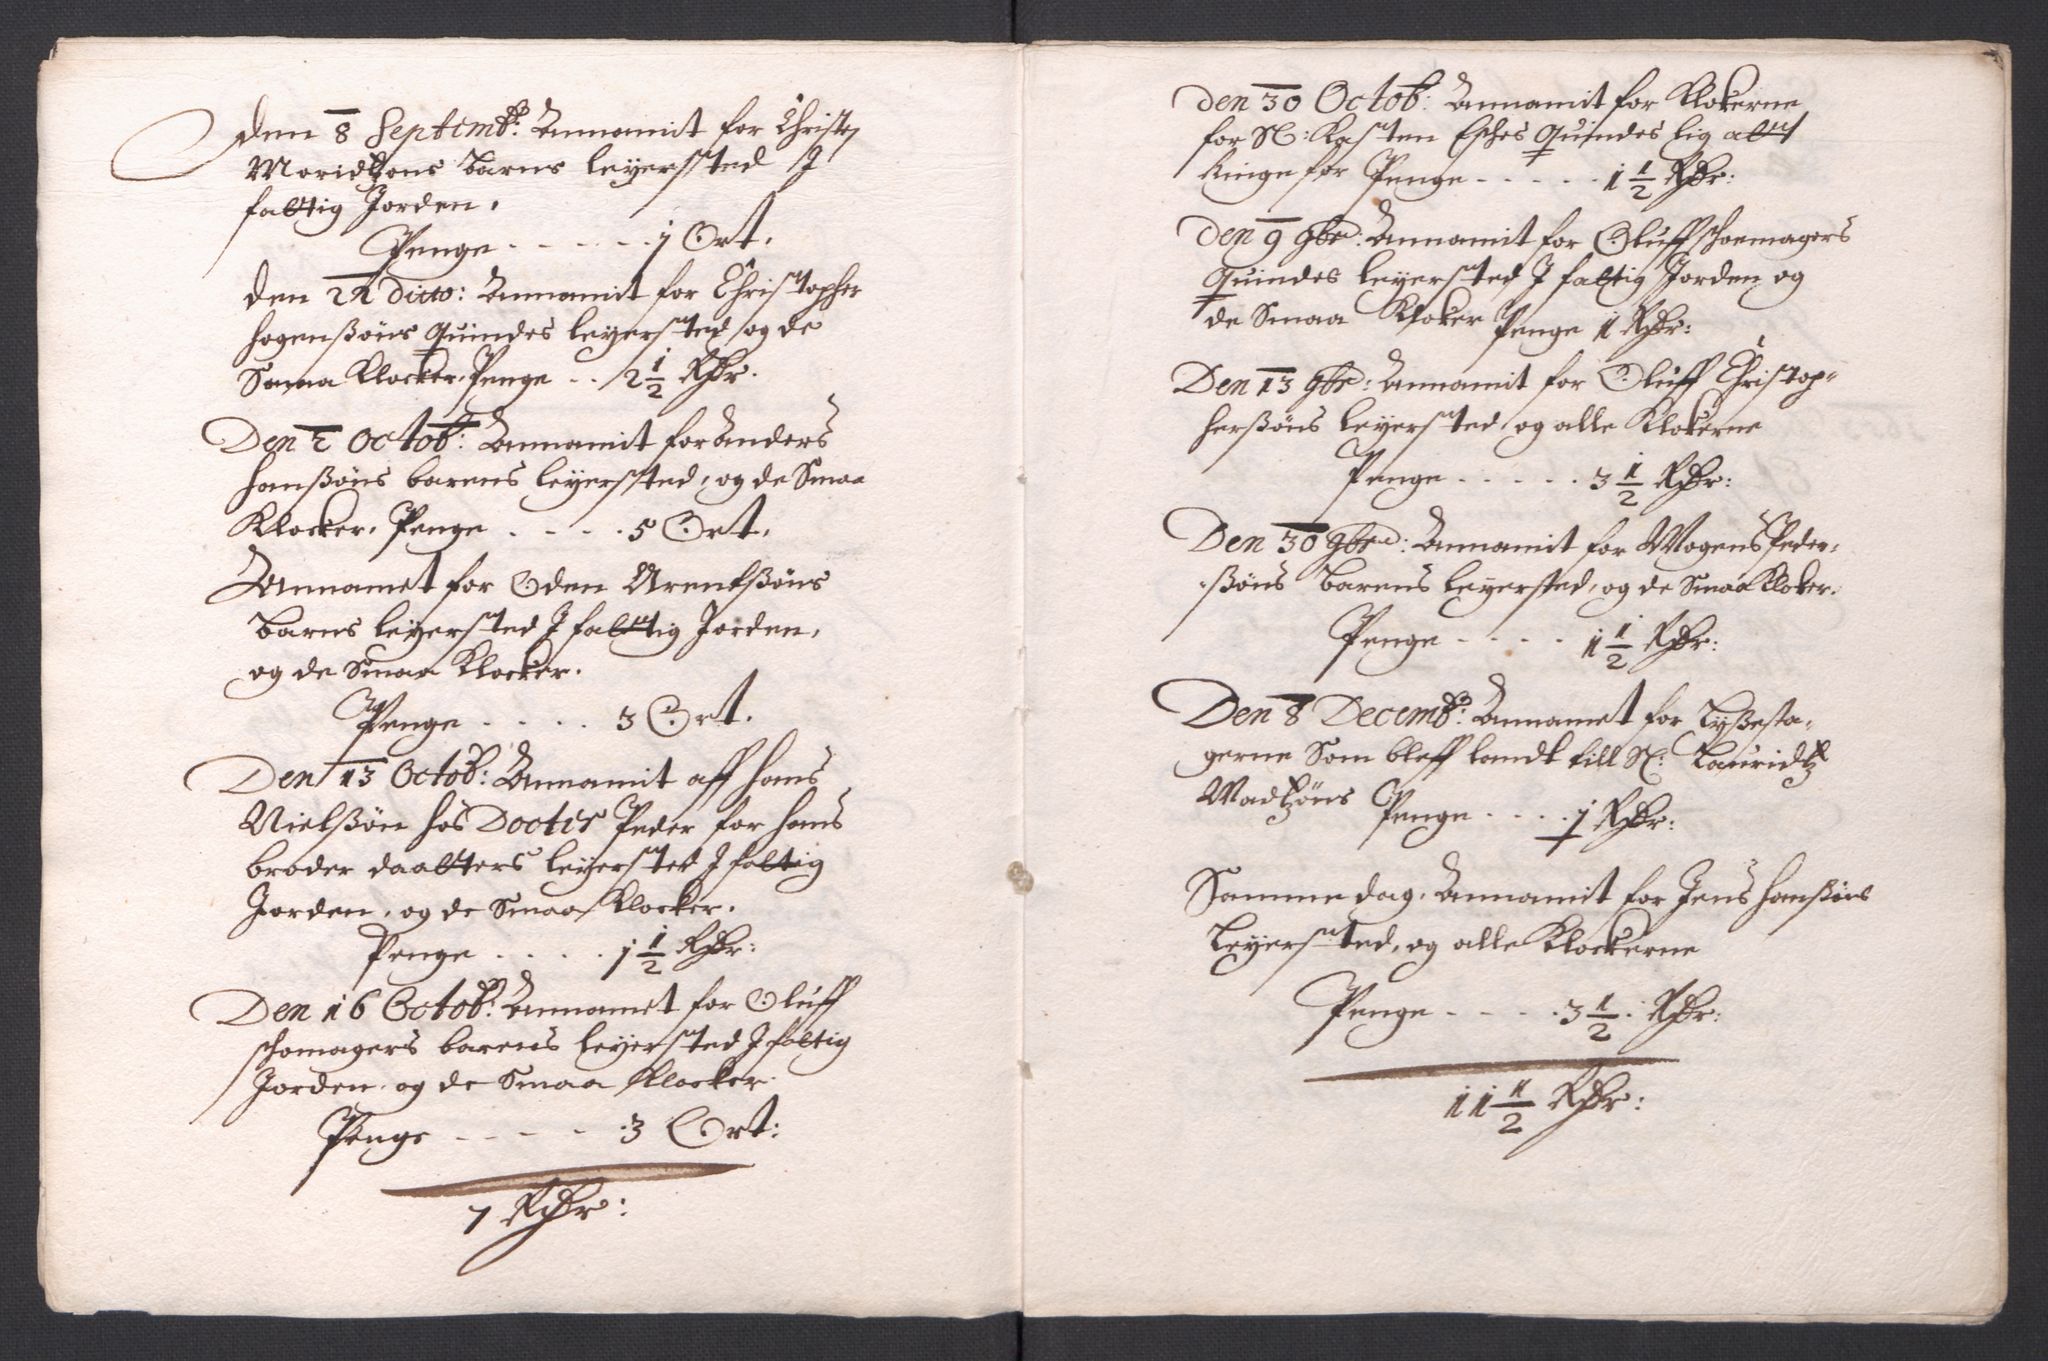 Den 8 Septemb: Annamit for Christen
Moridtzøns Barns leyersted J
fattig Jorden.
Penge - - - - - 1 Ort.
Den 22 Ditto: Annamit for Christopher
hogensßøns Quindes leyersted og de
Smaa Klocker. Penge - - 2 1/2 Rdr.
Den 2 Octob: Annamit for Anders
hanßøns barens leyersted, og de Smaa
Klocker. Penge - - - - 5 Ort.
Annamet for Oden Arentßøns
Barns leyersted J fattig Jorden,
og de Smaa Klocker.
Penge - - - - 3 Ort.
Den 13 Octob: Annamit aff hans
Nielßøn hos Docter Peder for hans
broder daatters leyersted J fattig
Jorden, og de Smaa Klocker.
Penge - - - - 1 1/2 Rdr:
Den 16 Octob: Annamet for Oluff
schomagers barens leyersted J fattig
Jorden, og de Smaa Klocker.
Penge - - - - - 3 Ort:
7 Rdr:
Den 30 Octob: Annamit for Klokerne
for Sl: Kasten Esches Quindes lig att
Ringe for Penge - - - - - 1 1/2 Rdr:
Den 9 9br: Annamit for Oluff schoemagers
Quindes leyersted J fattig Jorden og
de Smaa Kloker Penge 1 Rdr:
Den 13 9br: Annamit for Oluff Christop-
herßøns leyersted, og alle Klokerne
Penge - - - - - 3 1/2 Rdr:
Den 30 9br: Annamit for Mogens Peder-
ßøns Barens leyersted, og de Smaa Kloker.
Penge - - - - 1 1/2 Rdr:
Den 8 Decemb: Annamet for Lyßesta-
gerne Som bleff landt till Sl: Lauridtz
Madtzøns Penge - - - - 1 Rdr:
Samme dag, Annamit for Jens hanßøns
Leyersted, og alle Klockerne
Penge - - - - 3 1/2 Rdr:
11 1/2 Rdr: